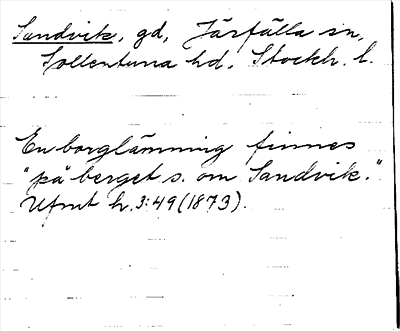 Sandvik, gd, Järfälla sn,
Sollentuna hd, Stockh. l.
En borglämning finnes
"på berget s. om Sandvik."
Ufmt h. 3:49 (1873).